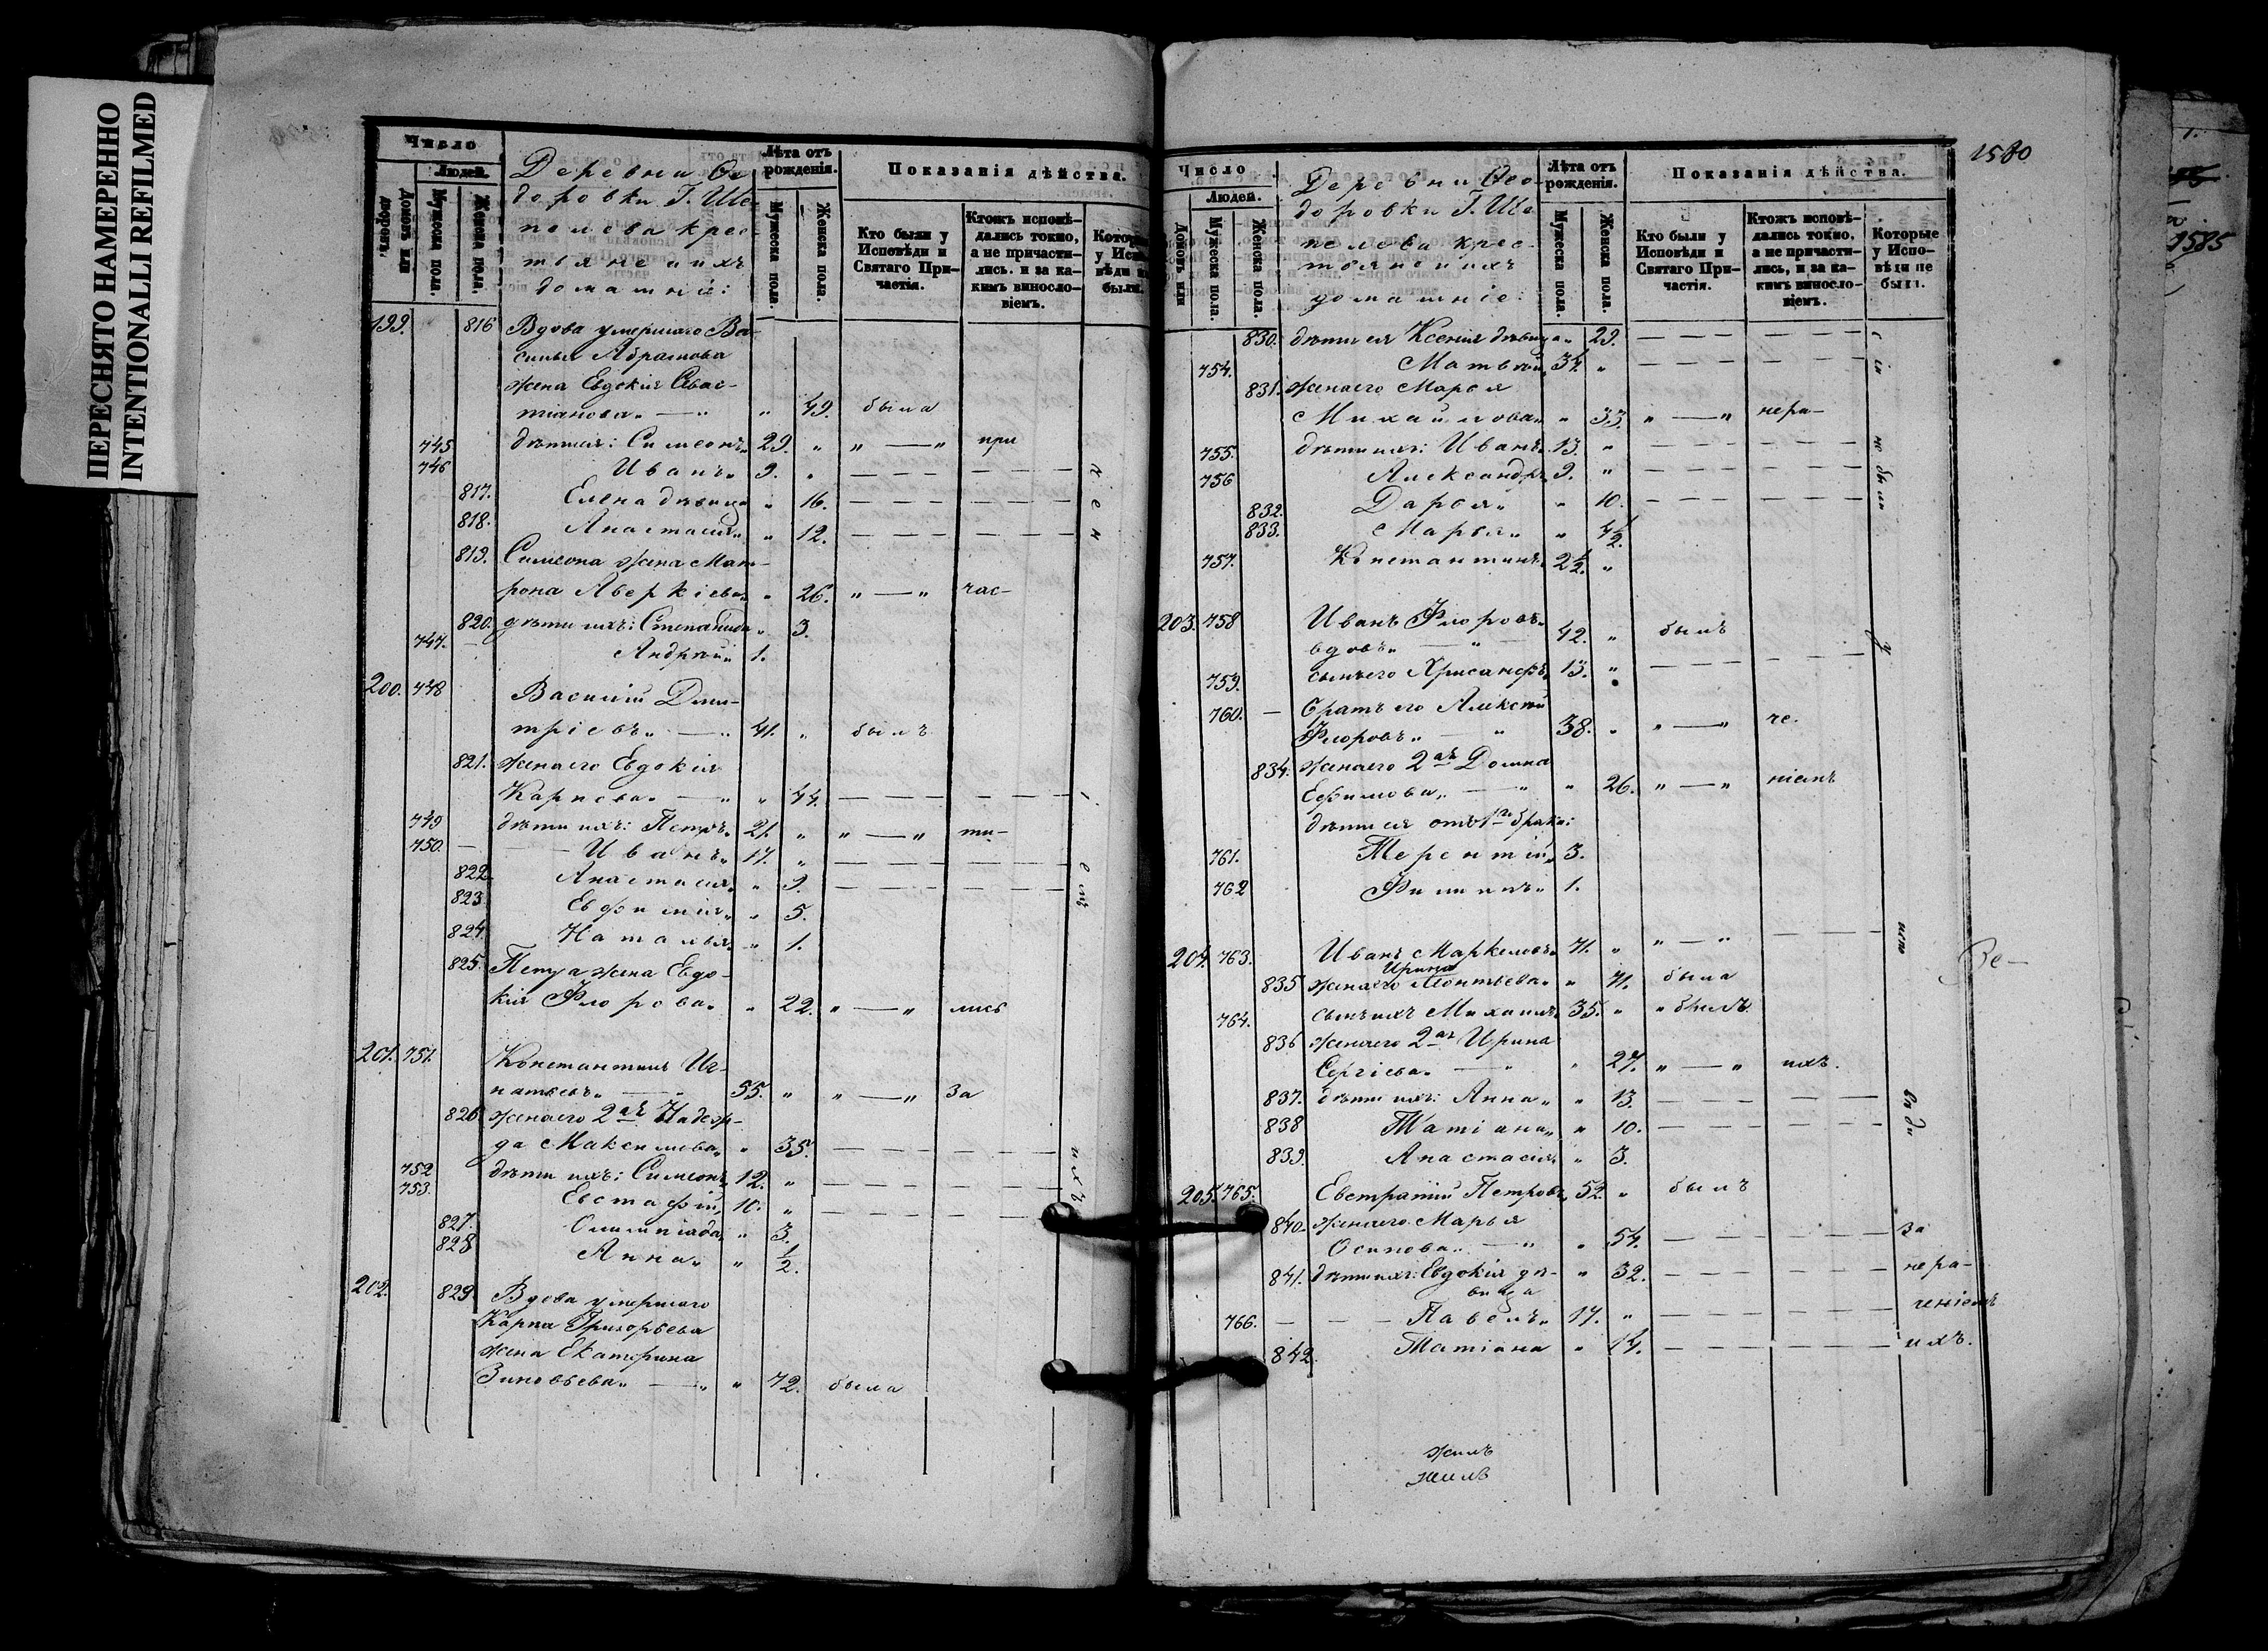 ПЕРЕСНЯТО НАМЕРЕННО
INTENTIONALLI REFILMED
Число
Людей.
Домовъ или дворовъ.
Мужеска пола.
Женска пола.
Деревни Ѳе
доровки Г. Ше
пелева крес
тьяне и ихъ
домашніи:
Лѣта отъ рожденія.
Мужеска пола.
Женска пола.
Показанія дѣйства.
Кто были у Исповѣди и Святаго Причастія.
Ктожъ исповѣдались токмо, а не причастились. и за какимъ винословіемъ.
199. 816 Вдова умершаго Ва-
силья Абрамова
жена Евдокія Савас-
тіанова „ — „ „ 49. была
745 дѣти ея: Симеонъ „ 29. „ „ — „ при
746 Иванъ „ 9. „ — — — — — —
817. Елена дѣвица „ 16. — — — — — —
818. Анастасія „ „ 12. — — — — — —
819. Симеона жена Мат-
рона Аверкіева „ „ 26. „ — „ час-
820. дѣти ихъ: Степанида „ 3.
747. — Андрей „ 1.
200. 748 Василій Дми-
тріевъ „ — „ 41. „ былъ
821. жена его Евдокія
Карпова „ — „ „ 44. — — — — — —
749 дѣти ихъ: Петръ „ 21. „ „ — „ ти-
750. — — Иванъ „ 17. „ — — — — — —
822 Анастасія „ „ 9. — — — — — —
823. Евфимія „ „ 5.
824. Наталья „ „ 1.
825. Петра жена Евдо-
кія Флорова „ „ 22. „ — „ лись
201. 751. Константинъ Иг-
натьевъ „ — 55. „ „ — „ за
826. жена его 2я Надеж-
да Максимова „ „ 35. — — — — — —
752 дѣти ихъ: Симеонъ „ 12. „ — — — — — —
753. Евстафій „ 10. „ — — — — — —
827. Олимпіада „ „ 3.
828 Анна „ „ 1/2.
202. 829. Вдова умершаго
Карпа Григорьева
жена Екатерина
Зиновьева „ — „ „ 72. была
1580
Число
Людей.
Домовъ или
Мужеска пола.
Женска пола.
Деревни Ѳео-
доровки Г. Ше
пелева крес-
тьяне и ихъ
домашніе:
Лѣта отъ рожденія.
Мужеска пола.
Женска пола.
Показанія дѣйства.
Кто были у Исповѣди и Святаго Причастія.
Ктожъ исповѣдались токмо, а не причастились, и за какимъ винословіемъ.
Которые у Исповѣди не были.
830. дѣти ея Ксенія дѣвица „ 29. — — — — —
754. Матвей „ 34. „ — — — — —
831. жена его Марья
Михайлова „ „ 33. „ — „ нера-
755. дѣти ихъ: Иванъ „ 13. „ — — — — —
756 Александръ „ 9. „ — — — — —
832. Дарья „ „ 10. — — — — —
833. Марья „ „ 4 1/2.
757. Константинъ „ 2 1/2. „
203. 758 Иванъ Флоровъ „
вдовъ „ — „ — 42. „ былъ
759. сынъ его Хрисанфъ „ 13. „ — — — — —
760. — братъ его Алексѣй
Флоровъ „ — „ 38. „ „ — „ че-
834. жена его 2я Домна
Ефимова „ — „ „ 26. „ — „ ніемъ
дѣти ея отъ 1го брака:
761. Терентій „ 3.
762 Филипъ „ 1.
204. 763. Иванъ Маркеловъ „ 71. „ „ — „ — — —
Ирина
835 жена его Леонтьева „ „ 71. была
764. сынъ ихъ Михаилъ „ 35. „ „ былъ.
836 жена его 2я Ирина
Сергіева „ — „ „ 27. „ — „ ихъ.
837. дѣти ихъ: Анна „ „ 13. — — — — —
838 Татіана „ „ 10. — — — — —
839. Анастасія „ „ 3.
205. 765. Евстратій Петровъ „ 52. „ былъ
840. жена его Марья
Осипова „ — „ „ 54. — — — — — за
841. дѣти ихъ: Евдокія дѣ-
вица „ 32. — — — — — нера-
766. — — — Павелъ „ 17. „ — — — — — ченіемъ
842. Татіана „ 14. — — — — — ихъ.
Ве—
жилъ
жилъ
1585